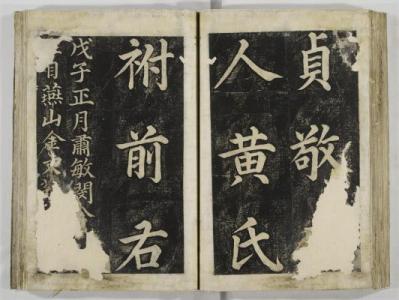 貞敬
人黄氏
祔前右
戊子正月肅敏閔
燕山金